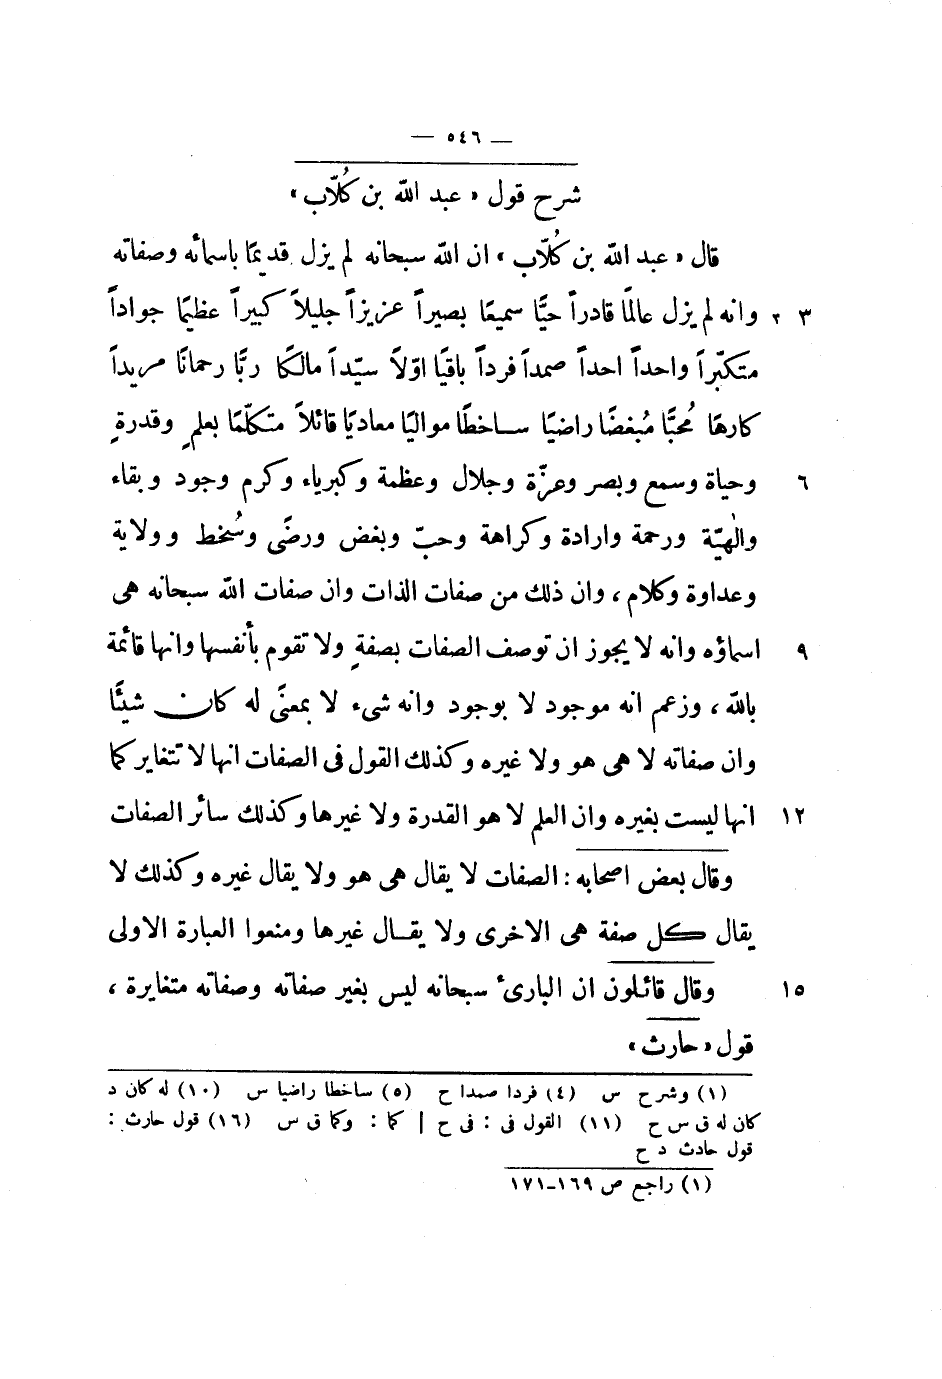 — ٥٤٦ —
شرح قول « عبد اللّٰه بن كُلّاب »
قال « عبد اللّٰه بن كُلّاب » ان اللّٰه سبحانه لم يزل قديمًا باسمائه وصفاته
٣ وانه لم يزل عالمًا قادراً حيًّا سميعًا بصيراً عزيزاً جليلاً كبيراً عظيمًا جواداً
متكبّراً واحداً احداً صمداً فرداً باقيًا اوّلاً سيّداً مالكًا ربًّا رحمانًا مريداً
كارهًا مُحبًّا مُبغضًا راضيًا ساخطًا مواليًا معاديًا قائلاً متكلّمًا بعلمٍ وقدرةٍ
٦ وحياة وسمع وبصر وعزّة وجلال وعظمة وكبرياء وكرم وجود وبقاء
والٰهيّة ورحمة وارادة وكراهة وحبّ وبغض ورضًى وسُخط وولاية
وعداوة وكلام ، وان ذلك من صفات الذات وان صفات اللّٰه سبحانه هى
٩ اسماؤه وانه لا يجوز ان توصف الصفات بصفةٍ ولا تقوم بأنفسها وانها قائمة
باللّٰه ، وزعم انه موجود لا بوجود وانه شىء لا بمعنًى له كان شيئًا
وان صفاته لا هى هو ولا غيره وكذلك القول فى الصفات انها لا تتغاير كما
١٢ انها ليست بغيره وان العلم لا هو القدرة ولا غيرها وكذلك سائر الصفات
وقال بعض اصحابه : الصفات لا يقال هى هو ولا يقال غيره وكذلك لا
يقال كل صفة هى الاخرى ولا يقال غيرها ومنعوا العبارة الاولى
١٥ وقال قائلون ان البارئ سبحانه ليس بغير صفاته وصفاته متغايرة ،
قول « حارث »
(١) وشرح س (٤) فردا صمدا ح (٥) ساخطا راضيا س (١٠) له كان د
كان له ق س ح (١١) القول فى : فى ح | كما : وكما ق س (١٦) قول حارث :
قول حادث د ح
(١) راجع ص ١٦٩-١٧١